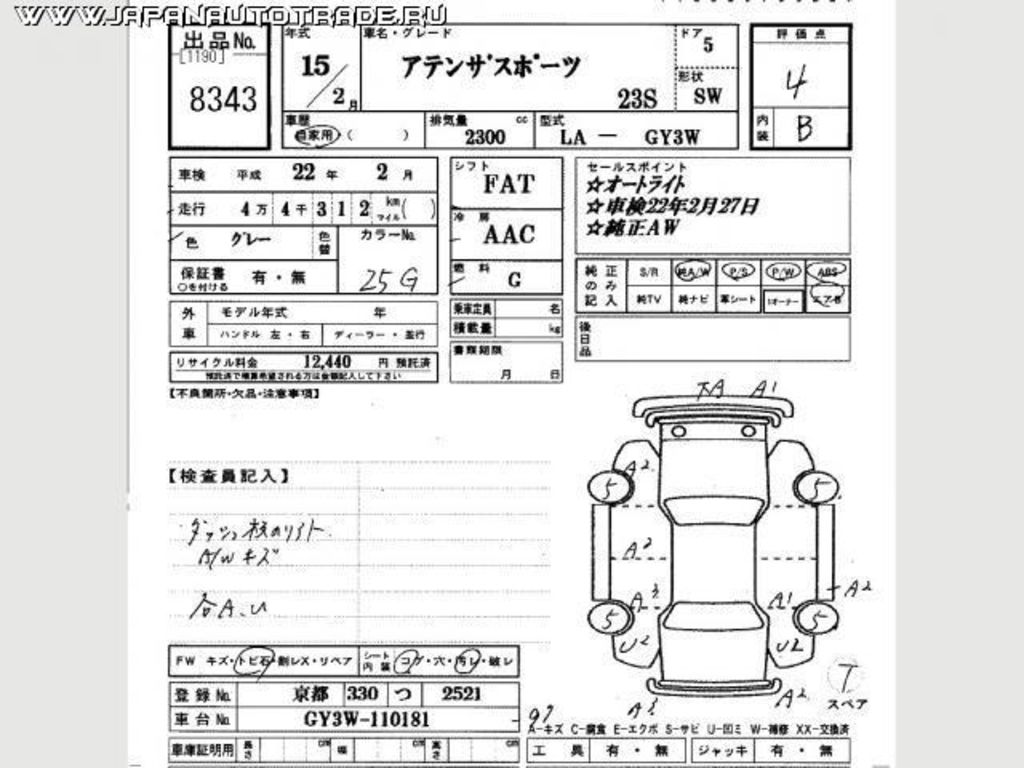 WWW.JAPANAUTOTRADE.RU
出品No.
[1190]
8343
年式
15/2月
車名・グレード
アテンザスポーツ
23S
ドア
5
形状
SW
評価点
4
内装
B
車歴
自家用・( )
排気量 cc
2300
型式
LA － GY3W
車検 平成 22 年 2 月
走行 4万 4千 3 1 2 km マイル( )
色 グレー
色替
カラーNo.
25G
保証書 有・無
○を付ける
外車
モデル年式 年
ハンドル 左・右
ディーラー・並行
リサイクル料金 12,440 円 預託済
シフト
FAT
冷房
AAC
燃料
G
乗車定員 名
積載量 kg
書類期限
月 日
セールスポイント
☆オートライト
☆車検22年2月27日
☆純正AW
純正のみ記入
S/R 純A/W P/S P/W ABS
純TV 純ナビ 革シート 1オーナー エアB
後日品
【不良箇所・欠品・注意事項】
【検査員記入】
A/Wキズ
各A.U
TA A1
A2
5 5
A2
A3 A1 A2
5 5
U2 U2
T
スペア
A3 A2
FW キズ・トビ石・割レX・リペア
シート内装 コゲ・穴・汚レ・破レ
登録No. 京都 330 つ 2521
車台No. GY3W-110181
車庫証明用 長さ cm 幅 cm 高さ cm
A－キズ C－腐食 E－エクボ S－サビ U－凹ミ W－補修 XX－交換済
工具 有・無 ジャッキ 有・無